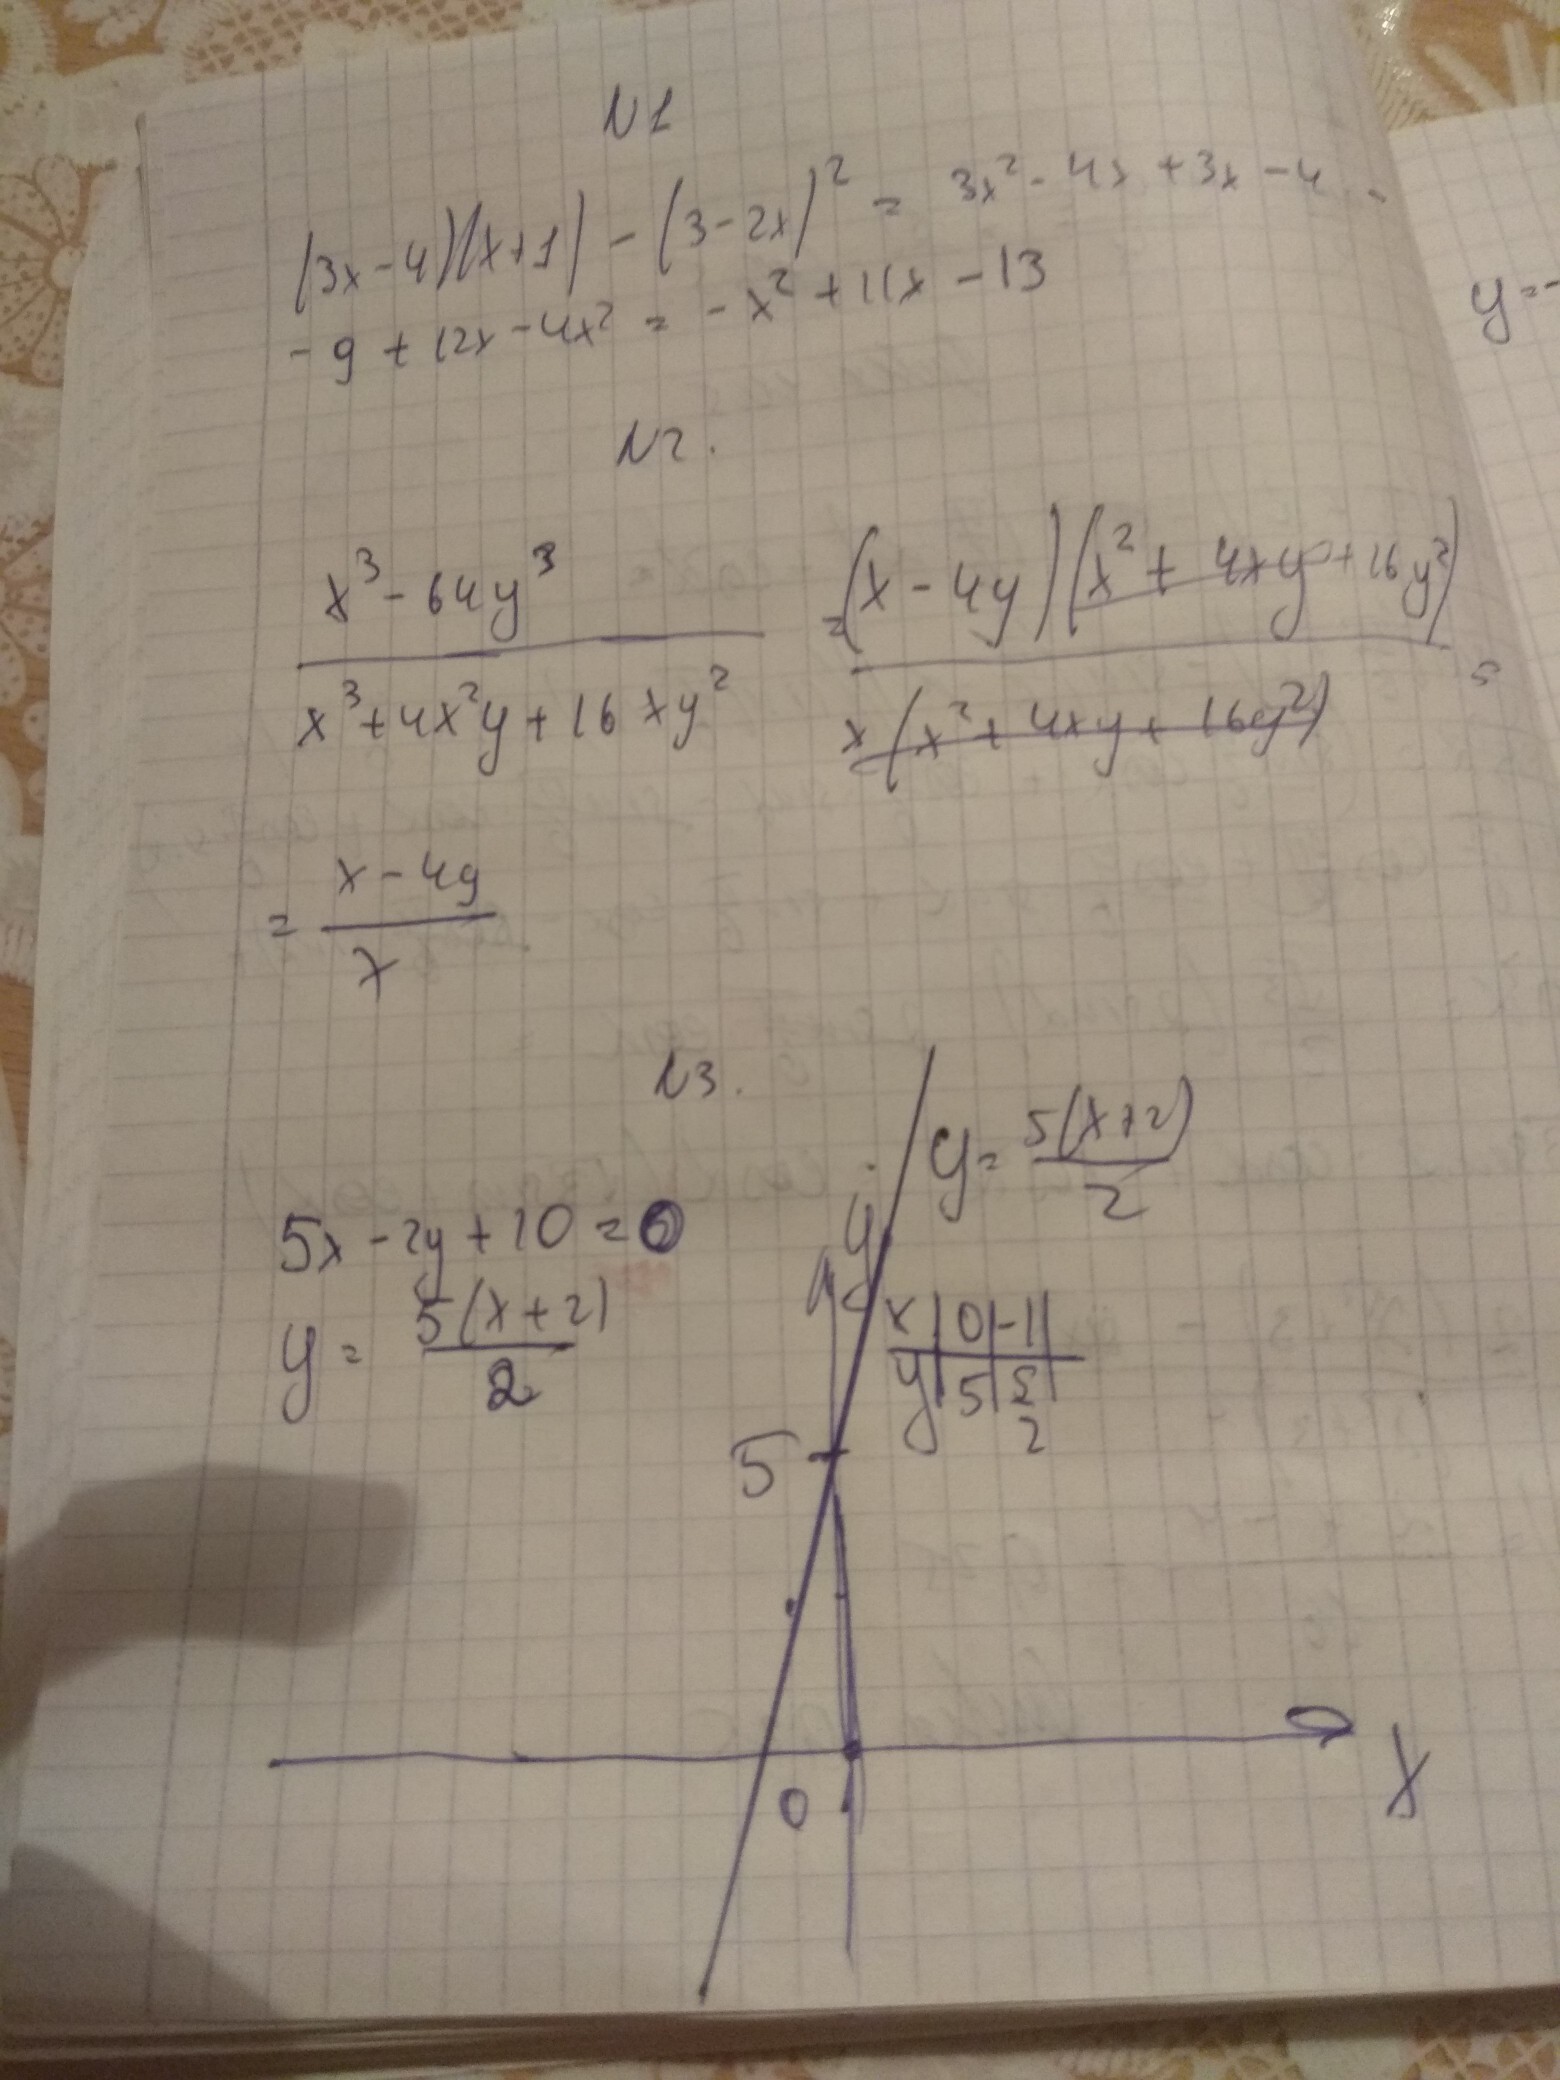 N1
(3x-4)(x+1) - (3-2x)² = 3x² - 4x + 3x - 4 -
- 9 + 12x - 4x² = - x² + 11x - 13
N2.
x³ - 64y³ / x³ + 4x²y + 16xy² = (x - 4y)(x² + 4xy + 16y²) / x(x² + 4xy + 16y²) =
= x - 4y / x
N3.
5x - 2y + 10 = 0
y = 5(x+2) / 2
y = 5(x+2) / 2
y
x | 0 | -1 |
y | 5 | 5/2 |
5
0
x
y = -